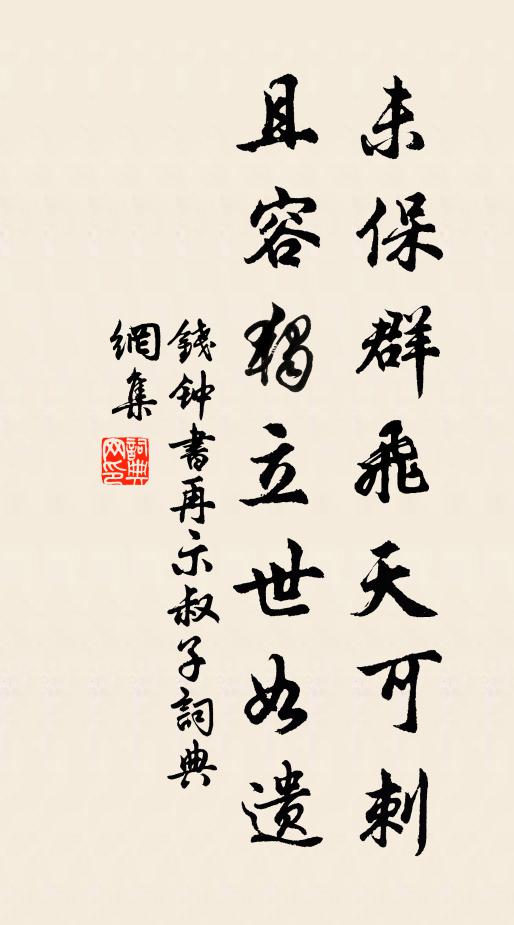 未保群飛天可刺
且容獨立世如遺
錢鈡書再示叔子詞典
網集
詞典網印